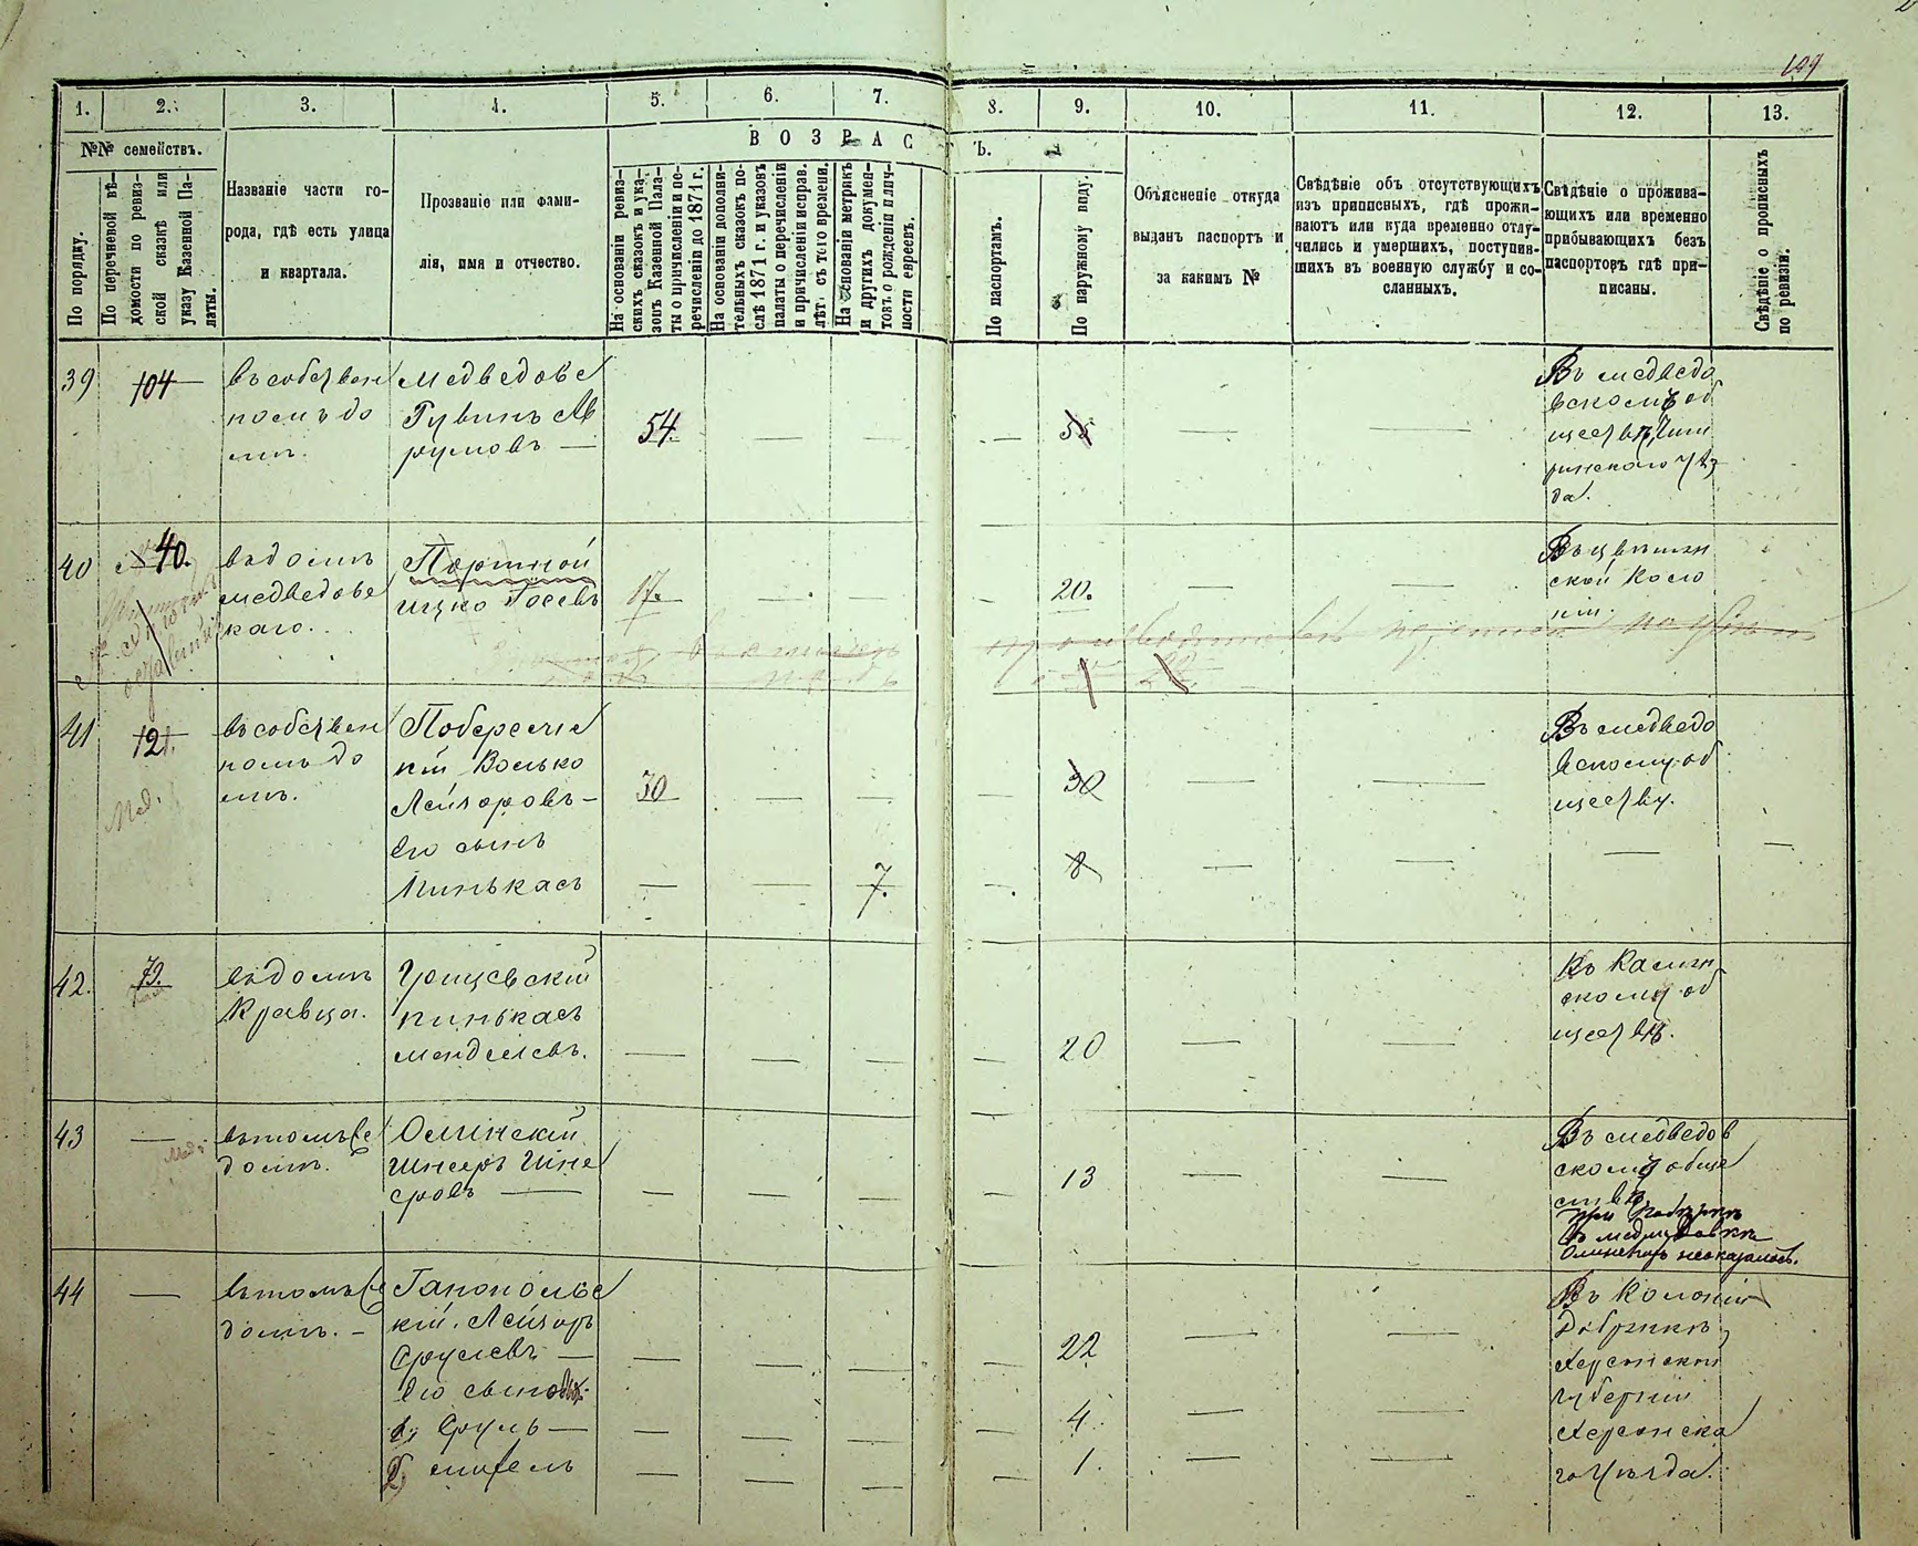 149
1. 2. 3. 4. 5. 6. 7. 8. 9. 10. 11. 12. 13.
№№ семействъ.
По порядку.
По перечневой вѣ-
домости по ревиз-
ской сказкѣ или
указу Казенной Па-
латы.
Названіе части го-
рода, гдѣ есть улица
и квартала.
Прозваніе или фами-
лія, имя и отчество.
ВОЗРАС
Ъ.
На основаніи ревиз-
скихъ сказокъ и ука-
зовъ Казенной Пала-
ты о причисленіи и пе-
речисленіи до 1871 г.
На основаніи дополни-
тельныхъ сказокъ по-
слѣ 1871 г. и указовъ
палаты о перечисленіи
и причисленіи исправ.
лѣт. съ того времени.
На основаніи метрикъ
и другихъ докумен-
товъ о рожденіи и лич-
ности евреевъ.
По паспортамъ.
По наружному виду.
Объясненіе откуда
выданъ паспортъ и
за какимъ №
Свѣдѣніе объ отсутствующихъ
изъ приписныхъ, гдѣ прожи-
ваютъ или куда временно отлу-
чились и умершихъ, поступив-
шихъ въ военную службу и со-
сланныхъ.
Свѣдѣніе о прожива-
ющихъ или временно
прибывающихъ безъ
паспортовъ гдѣ при-
писаны.
Свѣдѣніе о прописныхъ
по ревизіи.
39
104
въ собствен
номъ до
мѣ.
Медведовс
Рувинъ Ав
румовъ —
54.
— — —
55
— —
Въ медведо
вскомъ об
ществѣ, Чиги
ринского уѣз
да.
40
40.
въ домѣ
медведовс
каго.
Портной
Ицко Іосевъ
17.
— — —
20.
— —
ской Коло
ніи.
41
121.
Мед.
въ собствен
номъ до
мѣ.
Побережс
кій Волько
Лейзоровъ —
30
— —
30
— —
Въ медведо
вскому об
ществу.
его сынъ
Пинькасъ
— —
7.
—
8
— — — —
42.
73.
въ домѣ
Кравца.
пинькасъ
менделевъ.
— — — —
20
— —
скому об
ществѣ.
43
—
Мед.
въ томъ же
домѣ.
Олинскій
Шнееръ Шне
еровъ —
— — — —
13
— —
Въ медведов
скому обще
ствѣ
при повѣркѣ
въ медведовкѣ
Олинскаго неоказалось.
44
—
въ томъ же
домѣ. —
Гапонольс
кій Лейзоръ
Срулевъ —
— — — —
22
— —
Въ Колоніи
Добринкѣ,
Херсонской
губерніи
Херсонска
го Уѣзда.
его сыновья:
1, Сруль —
— — — —
4.
— —
— — — —
1.
— —